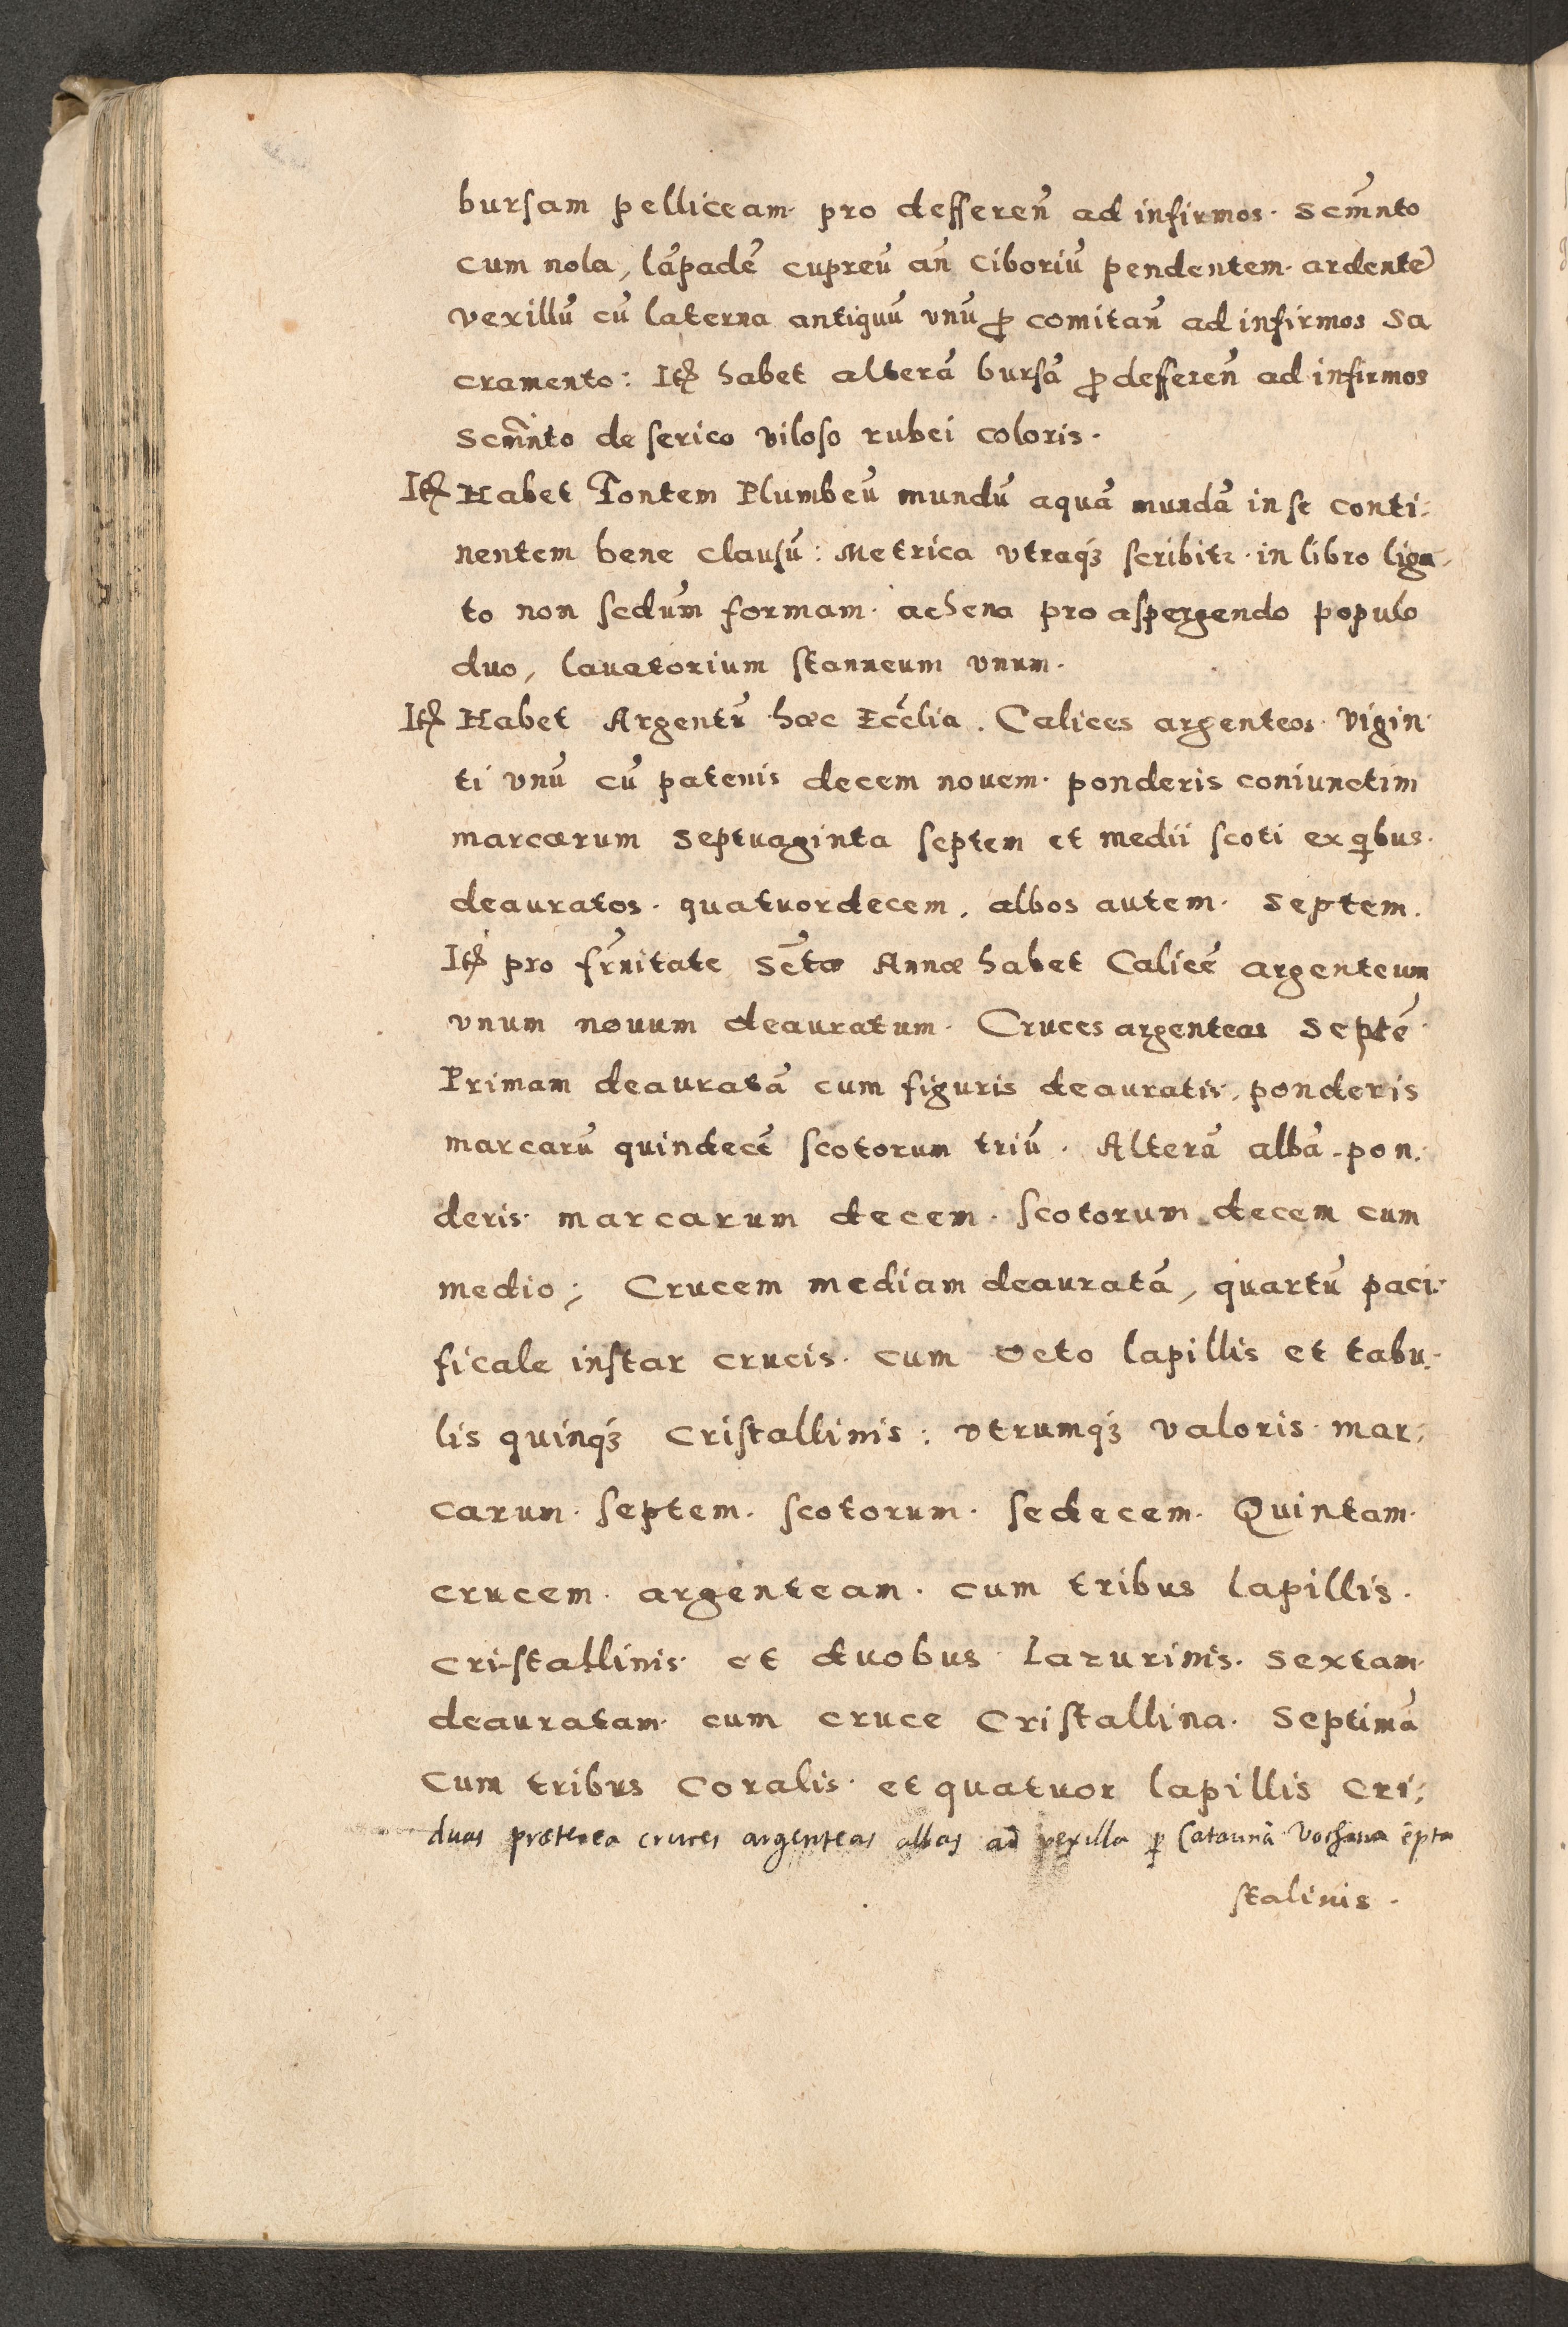 bursam pelliceam· pro defferen̄ ad infirmos· Scm̄nto
cum nola, lāpadē cupreū an̄ Ciboriū pendentem· ardentē
vexillū cū laterna antiquū vnū ꝓ comitan̄ ad infirmos Sa
cramento: Itē habet alterā bursā ꝓ defferen̄ ad infirmos
Scm̄nto de serico viloso rubei coloris·
Itē Habet Fontem Plumbeū mundū aquā mundā in se conti:
nentem bene clausū: Metrica vtraqꝫ scribitr· in libro liga,
to non sedūm formam· achena pro aspergendo populo
duo, lauatorium stanneum vnum·
Itē Habet Argentū hæc Eccēlia. Calices argenteos· vigin·
ti vnū cū patenis decem nouem· ponderis coniunctim
marcarum Septuaginta septem et medii scoti ex qibus·
deauratos· quatuordecem, albos autem· Septem.
Itē pro frn̄itate Sctǣ Annæ habet Calicē argenteum
vnum nouum deauratum· Cruces argenteas Septē·
Primam deauratā cum figuris deauratis, ponderis
marcarū quindecē scotorum triū· Alterā albā pon:
deris· marcarum decem· scotorum decem cum
medio; Crucem mediam deauratā, quartū paci:
ficale instar crucis· cum octo lapillis et tabu:
lis quinqꝫ Cristallinis: vtrumqꝫ valoris· mar:
carum· septem· scotorum· sedecem· Quintam·
crucem· argenteam· cum tribus lapillis·
cristallinis· et duobus Lazurinis· Sextam·
deauratam· cum cruce Cristallina· Septimā
Cum tribus Coralis· et quatuor lapillis Cri:
duas præterea cruces argenteas albas ad vexilla ꝑ
stalinis·